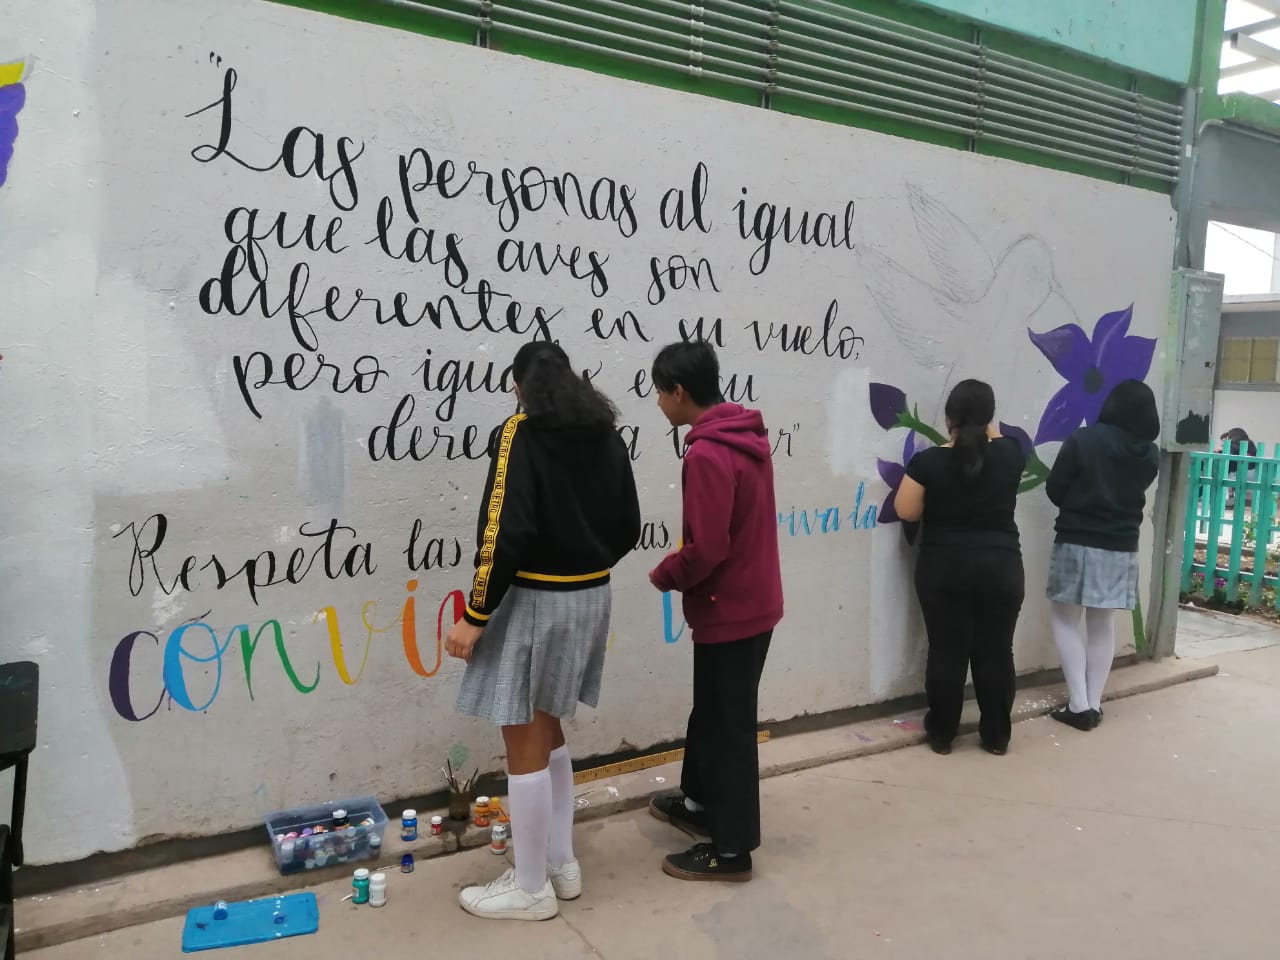 "Las personas al igual
que las aves son
diferentes en su vuelo,
pero igua s e su
dere a v ar"
Respeta las as, viva la
convi